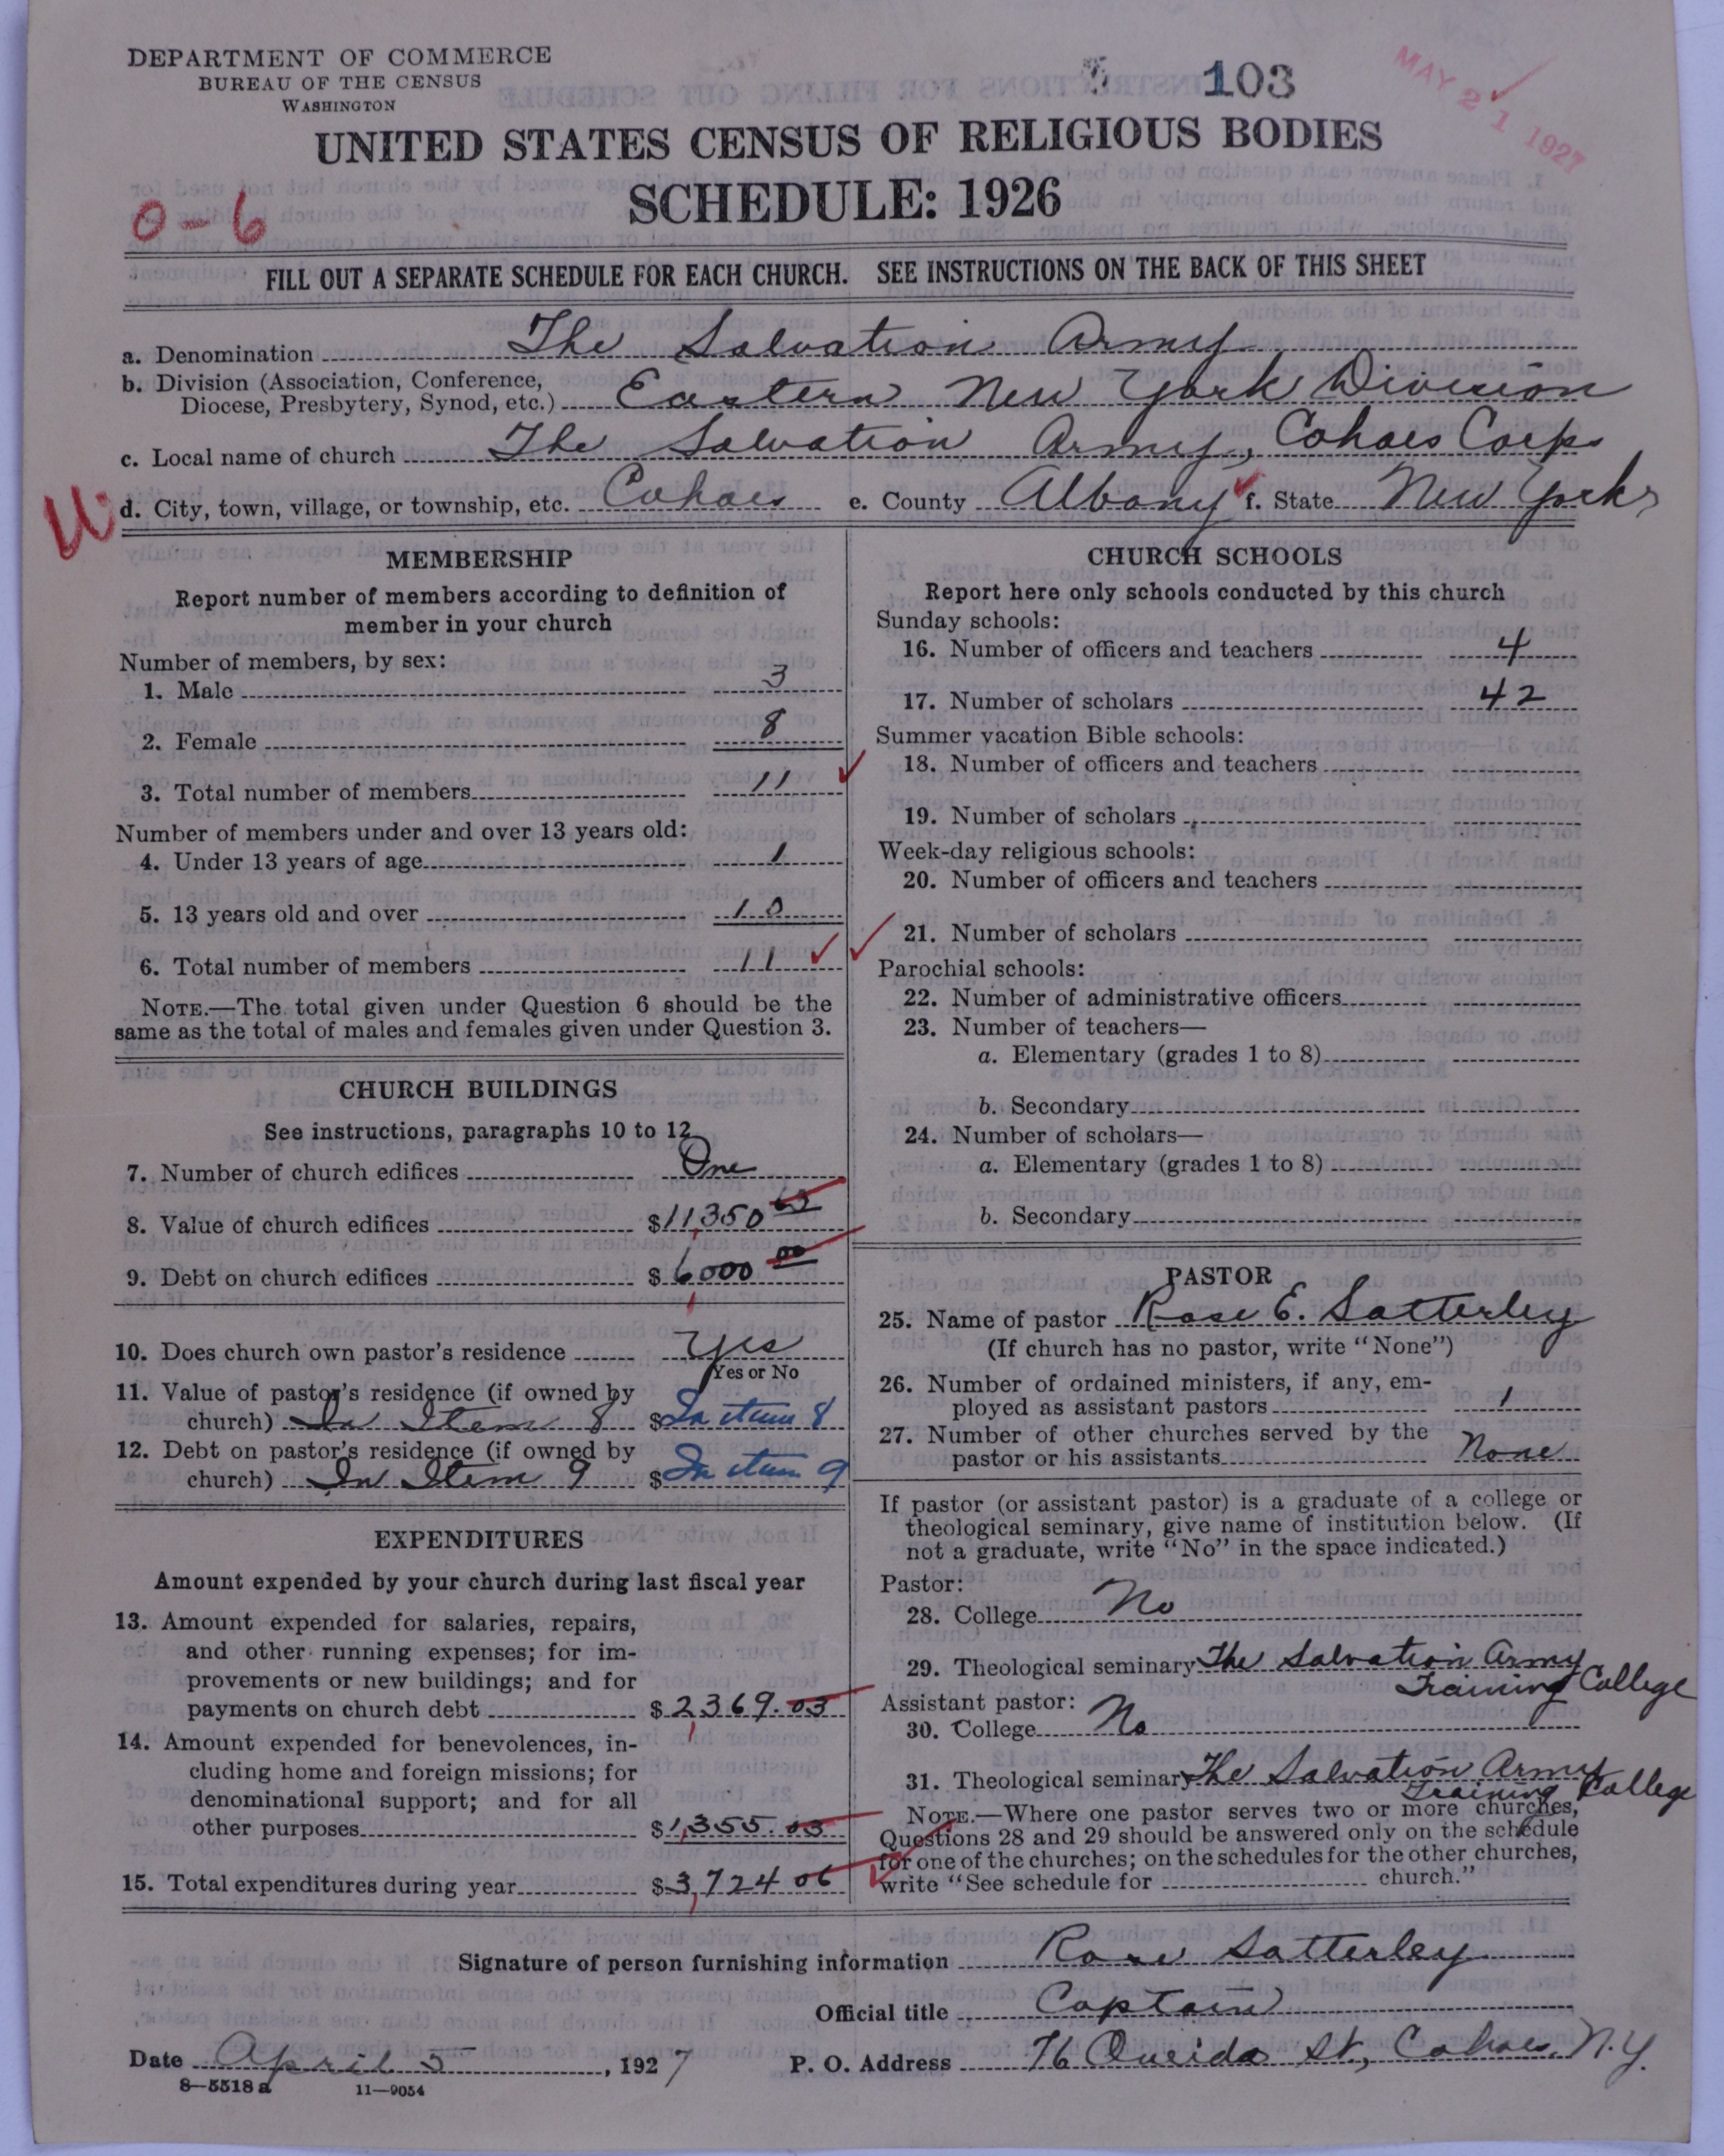 DEPARTMENT OF COMMERCE
BUREAU OF THE CENSUS
WASHINGTON
103
MAY 21 1927
UNITED STATES CENSUS OF RELIGIOUS BODIES
SCHEDULE: 1926
0-6
FILL OUT A SEPARATE SCHEDULE FOR EACH CHURCH. SEE INSTRUCTIONS ON THE BACK OF THIS SHEET
a. Denomination The Salvation Army
b. Division (Association, Conference,
Diocese, Presbytery, Synod, etc.) Eastern New York Division
c. Local name of church The Salvation Army, Cohoes Corps
d. City, town, village, or township, etc. Cohoes e. County Albany f. State New York
MEMBERSHIP
Report number of members according to definition of
member in your church
Number of members, by sex:
1. Male 3
2. Female 8
3. Total number of members 11
Number of members under and over 13 years old:
4. Under 13 years of age 1
5. 13 years old and over 10
6. Total number of members 11
NOTE.—The total given under Question 6 should be the
same as the total of males and females given under Question 3.
CHURCH BUILDINGS
See instructions, paragraphs 10 to 12
7. Number of church edifices One
8. Value of church edifices $11,350
9. Debt on church edifices $6000 00
10. Does church own pastor's residence Yes
Yes or No
11. Value of pastor's residence (if owned by
church) In Item 8 $In item 8
12. Debt on pastor's residence (if owned by
church) In Item 9 $In item 9
EXPENDITURES
Amount expended by your church during last fiscal year
13. Amount expended for salaries, repairs,
and other running expenses; for im-
provements or new buildings; and for
payments on church debt $2,369.03
14. Amount expended for benevolences, in-
cluding home and foreign missions; for
denominational support; and for all
other purposes $1,355.03
15. Total expenditures during year $3,724 06
CHURCH SCHOOLS
Report here only schools conducted by this church
Sunday schools:
16. Number of officers and teachers 4
17. Number of scholars 42
Summer vacation Bible schools:
18. Number of officers and teachers
19. Number of scholars
Week-day religious schools:
20. Number of officers and teachers
21. Number of scholars
Parochial schools:
22. Number of administrative officers
23. Number of teachers—
a. Elementary (grades 1 to 8)
b. Secondary
24. Number of scholars—
a. Elementary (grades 1 to 8)
b. Secondary
PASTOR
25. Name of pastor Rose E. Satterley
(If church has no pastor, write "None")
26. Number of ordained ministers, if any, em-
ployed as assistant pastors 1
27. Number of other churches served by the
pastor or his assistants None
If pastor (or assistant pastor) is a graduate of a college or
theological seminary, give name of institution below. (If
not a graduate, write "No" in the space indicated.)
Pastor:
28. College No
29. Theological seminary The Salvation Army
Training College
Assistant pastor:
30. College No
31. Theological seminary The Salvation Army
Training College
NOTE.—Where one pastor serves two or more churches,
Questions 28 and 29 should be answered only on the schedule
for one of the churches; on the schedules for the other churches,
write "See schedule for church."
Signature of person furnishing information Rose Satterley
Official title Captain
Date April 5, 1927 P. O. Address 76 Oneida St., Cohoes, N.Y.
8—5518 a 11—9054